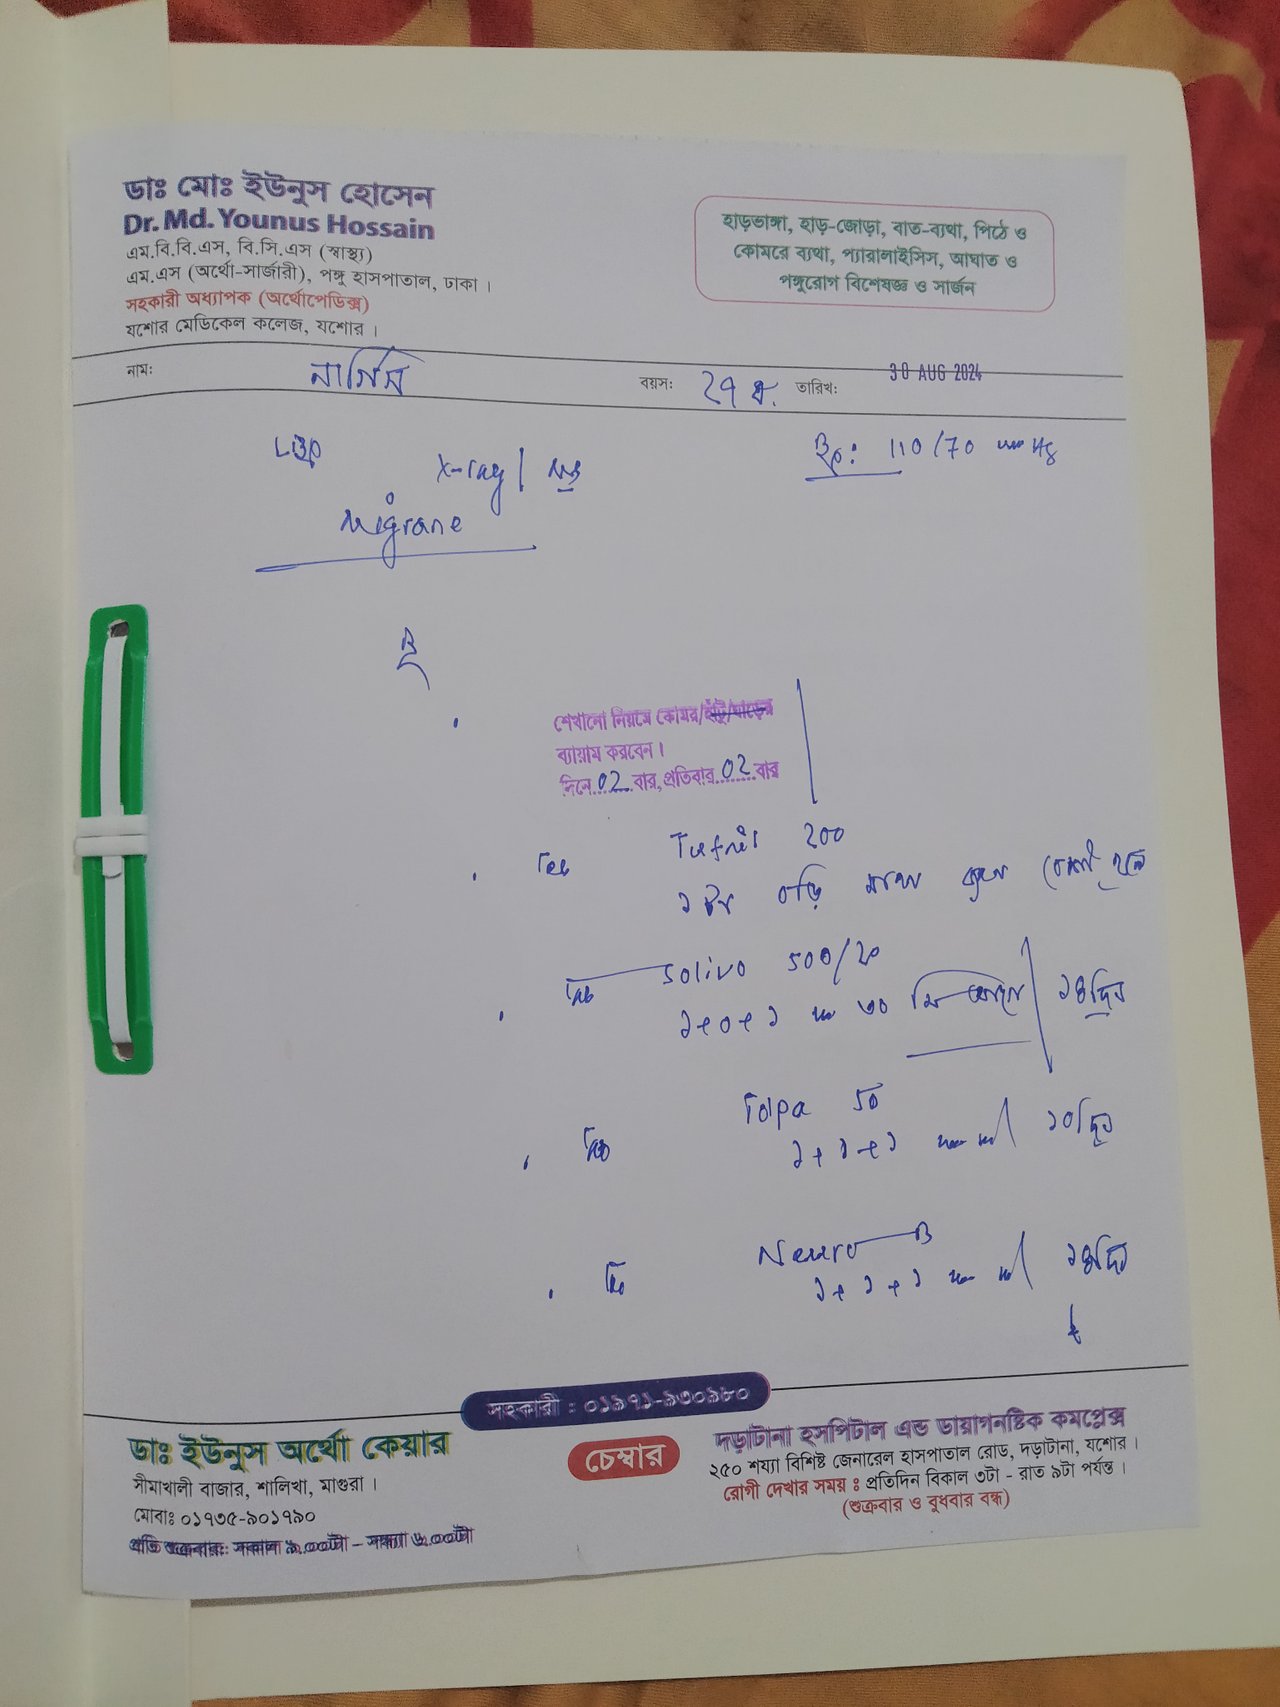 ডাঃ মোঃ ইউনুস হোসেন
Dr. Md. Younus Hossain
এম.বি.বি.এস, বি.সি.এস (স্বাস্থ্য)
এম.এস (অর্থো-সার্জারী), পঙ্গু হাসপাতাল, ঢাকা।
সহকারী অধ্যাপক (অর্থোপেডিক্স)
যশোর মেডিকেল কলেজ, যশোর।
হাড়ভাঙ্গা, হাড়-জোড়া, বাত-ব্যথা, পিঠে ও
কোমরে ব্যথা, প্যারালাইসিস, আঘাত ও
পঙ্গুরোগ বিশেষজ্ঞ ও সার্জন
নাম: নার্গিস বয়স: ২৭ তারিখ: 30 AUG 2024
LBP
X-ray
Bp: 110/70 mm Hg
Migrane
শেখানো নিয়মে কোমর/হাঁটু/ঘাড়ের
ব্যায়াম করবেন।
দিনে 02 বার, প্রতিবার 02 বার
Tab Tufnil 200
১ টা বড়ি মাথা ব্যথা বেশী হলে
Tab Solivo 500/20
১+০+১ ৩০ মি আগে ১৪দিন
Tab Tolpa 50
১+১+১ ১০দিন
Neuro-B
১+১+১
সহকারী : ০১৯৭১-৯৩০৯৮০
ডাঃ ইউনুস অর্থো কেয়ার
সীমাখালী বাজার, শালিখা, মাগুরা।
মোবাঃ ০১৭৩৫-৯০১৭৯০
প্রতি শুক্রবার: সকাল ৯.০০টা - সন্ধ্যা ৬.০০টা
চেম্বার
দড়াটানা হসপিটাল এন্ড ডায়াগনষ্টিক কমপ্লেক্স
২৫০ শয্যা বিশিষ্ট জেনারেল হাসপাতাল রোড, দড়াটানা, যশোর।
রোগী দেখার সময় : প্রতিদিন বিকাল ৩টা - রাত ৯টা পর্যন্ত।
(শুক্রবার ও বুধবার বন্ধ)